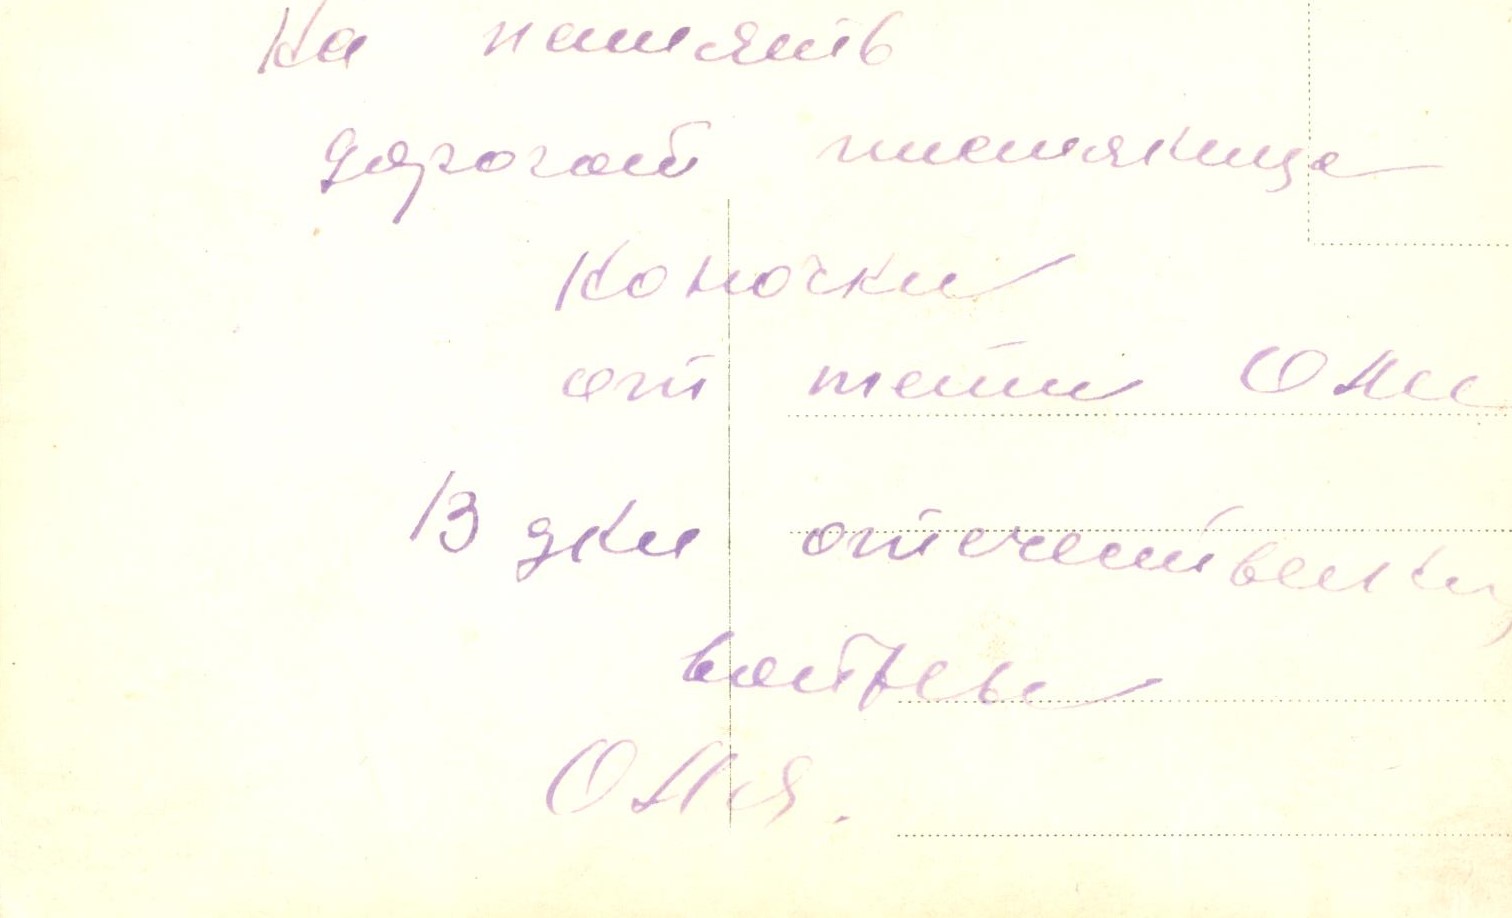 На память
дорогой племянице
Ноночки
от тети Они
В дни отечественны
войны
Оня.